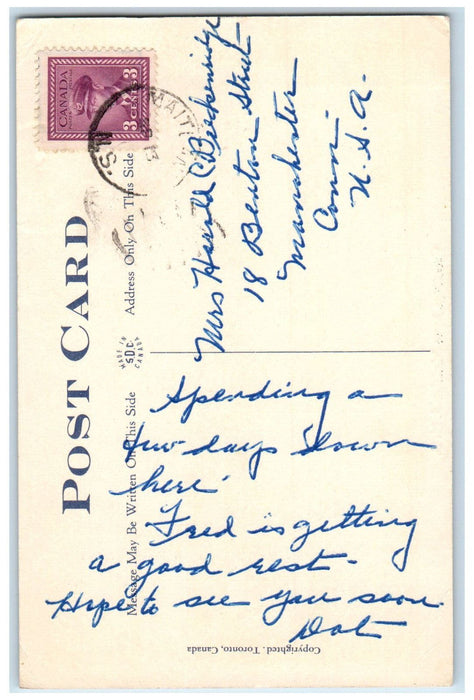 POST CARD
CANADA
3 CENTS 3
MAIT
N.S.
Address Only On This Side
MADE IN
S.D.C.
CANADA
Message May Be Written On This Side
Mrs Harold C Breckenridge
18 Benton Street
Manchester
Conn-
U.S.A.
Spending a
few days down
here.
Fred is getting
a good rest-
Hope to see you soon.
Dot
Copyrighted. Toronto, Canada